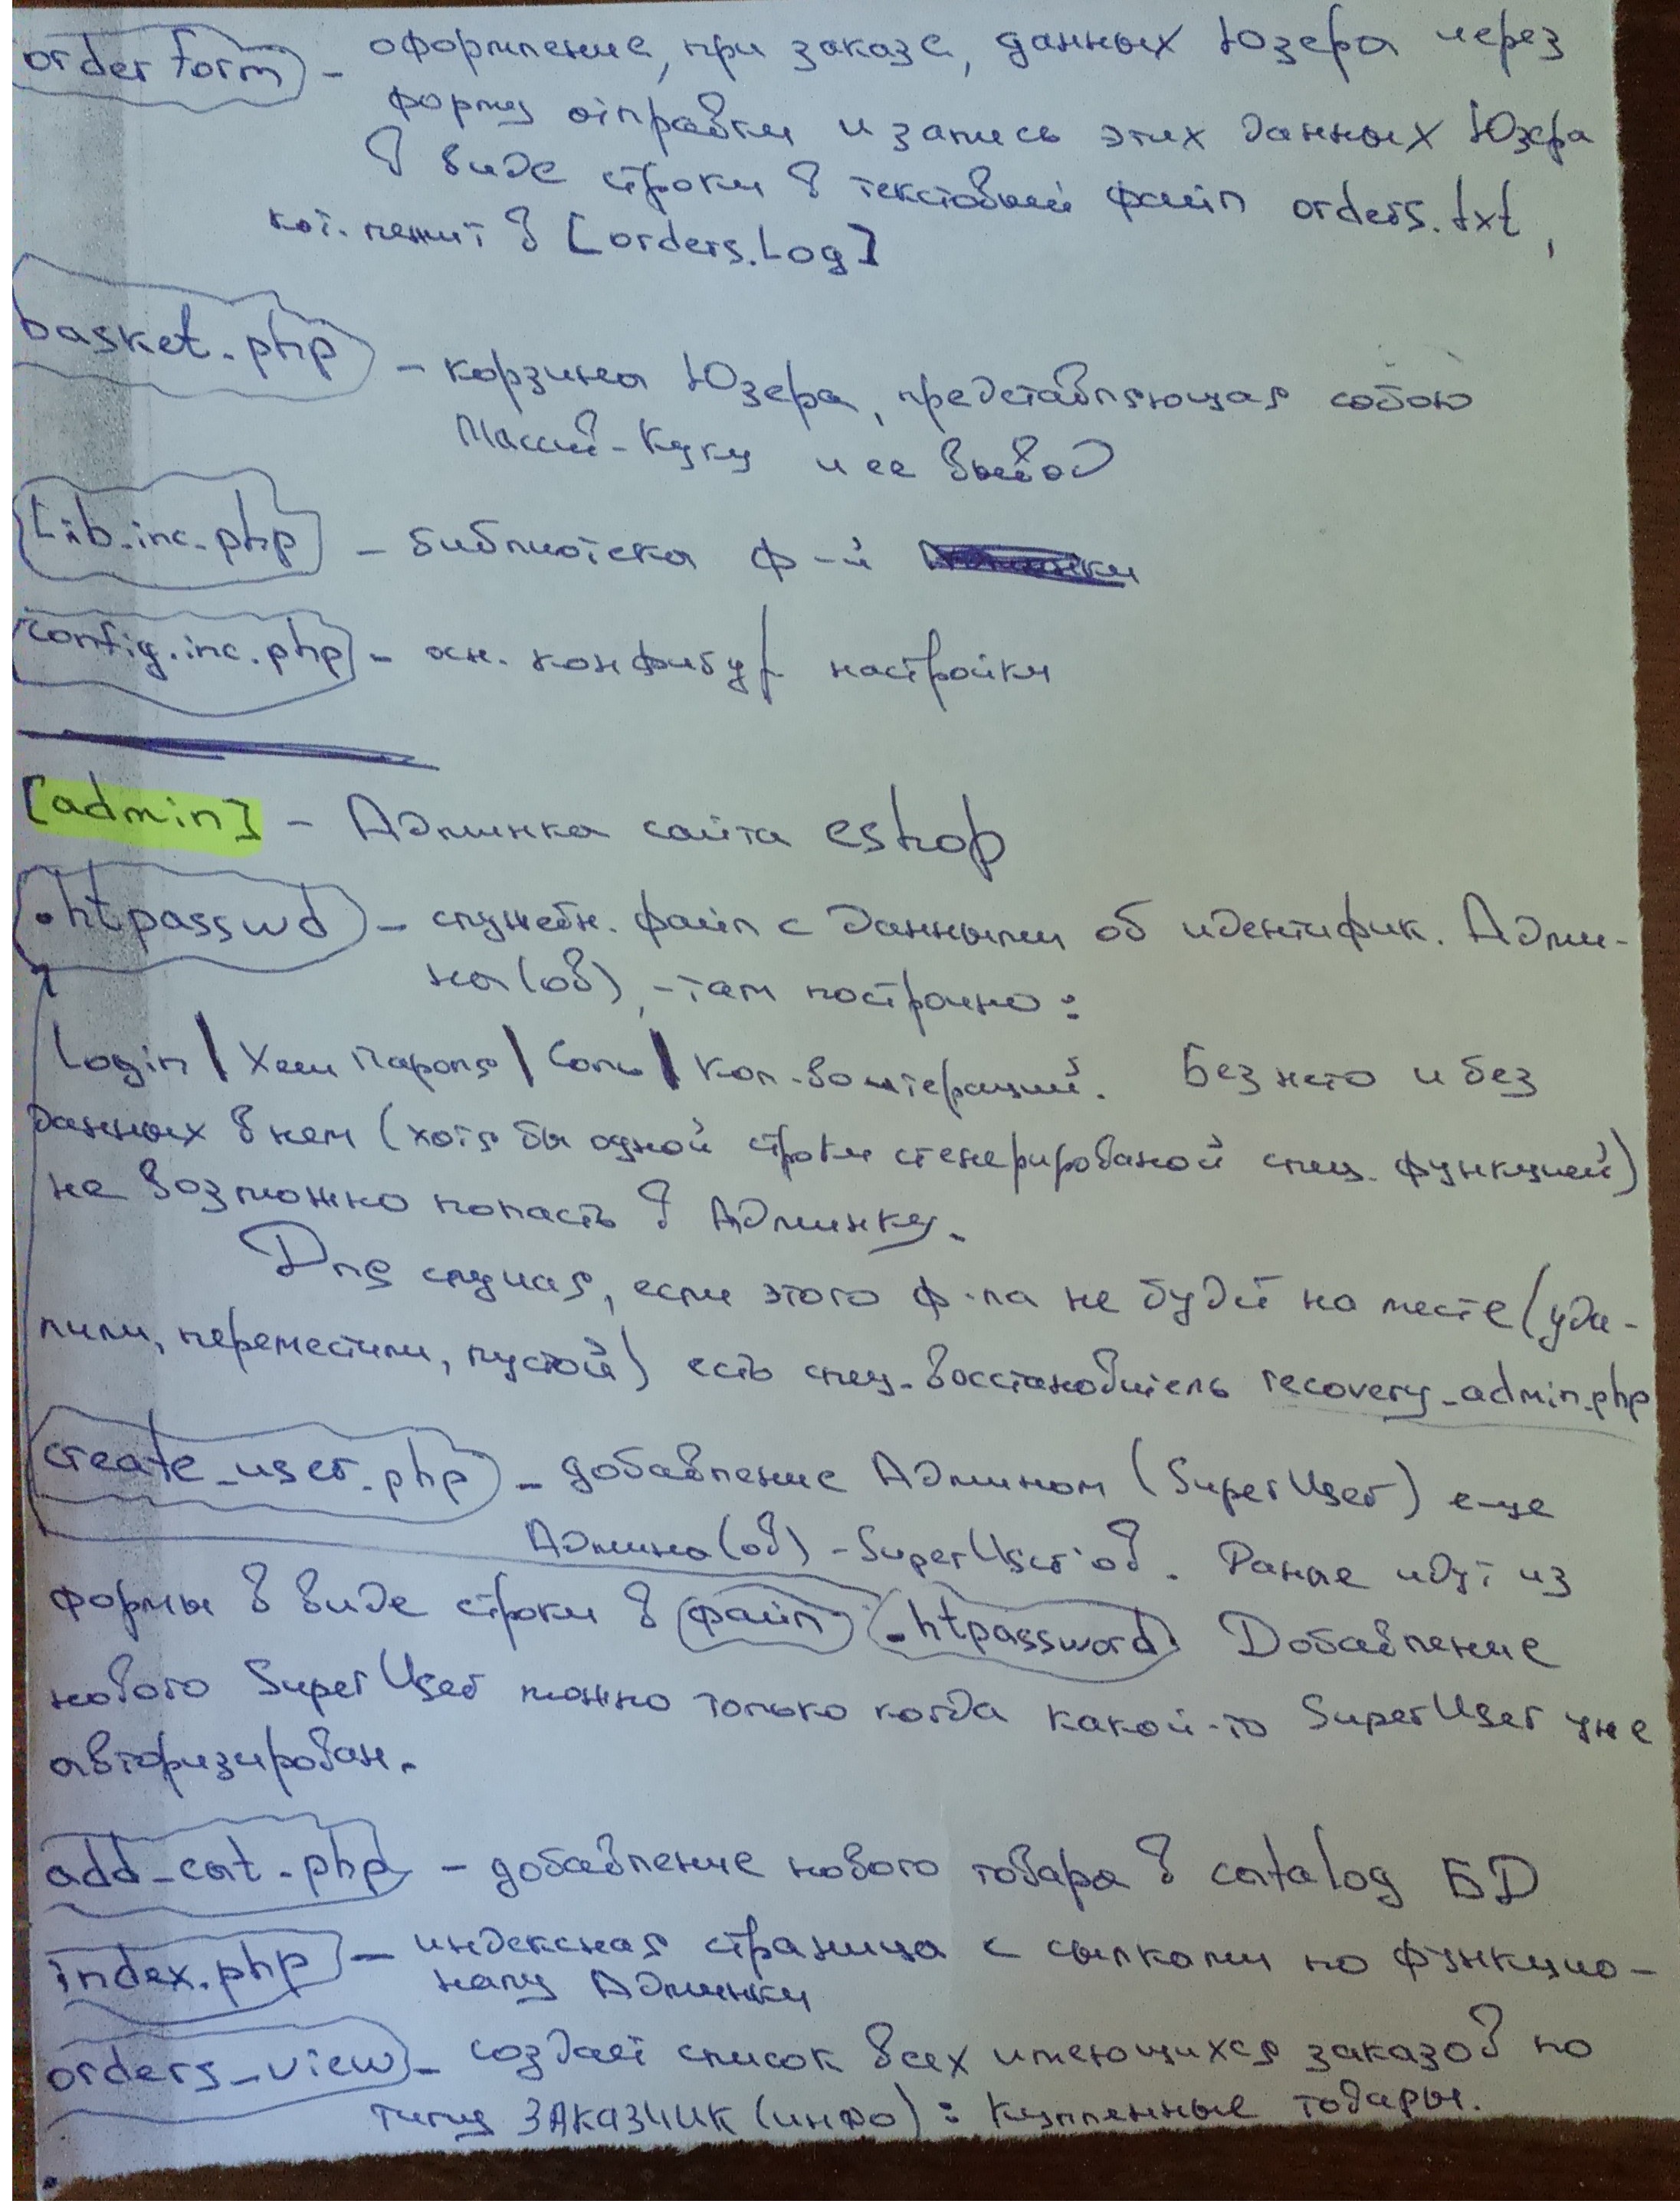 order form - оформление, при заказе, данных Юзера через
форму отправки и запись этих данных Юзера
в виде строки в текстовый файл orders.txt,
кот. лежит в [orders.Log]
basket.php - корзина Юзера, представляющая собою
Массив-Куку и ее вывод
Lib.inc.php - библиотека ф-й
config.inc.php - осн. конфигур настройки
[admin] - Админка сайта eshop
.htpasswd - служебн. файл с данными об идентифик. Адми-
на(ов), - там построчно:
Login | Хеш Пароля | Соль | Кол-во итераций. Без него и без
данных в нем (хотя бы одной строки сгенерированой спец. функцией)
не возможно попасть в Админку.
Для случая, если этого ф-ла не будет на месте (уда-
лили, переместили, пустой) есть спец-восстановитель recovery_admin.php
create_user.php - добавление Админом (SuperUser) еще
Админа(ов) - SuperUser'ов. Раные идут из
формы в виде строки в файл .htpassword Добавление
нового SuperUser можно только когда какой-то SuperUser уже
авторизирован.
add_cat.php - добавление нового товара в catalog БД
index.php - индексная страница с сылками по функцио-
налу Админки
orders_view - создает список всех имеющихся заказов по
типу ЗАКАЗЧИК (инфо): Купленные товары.